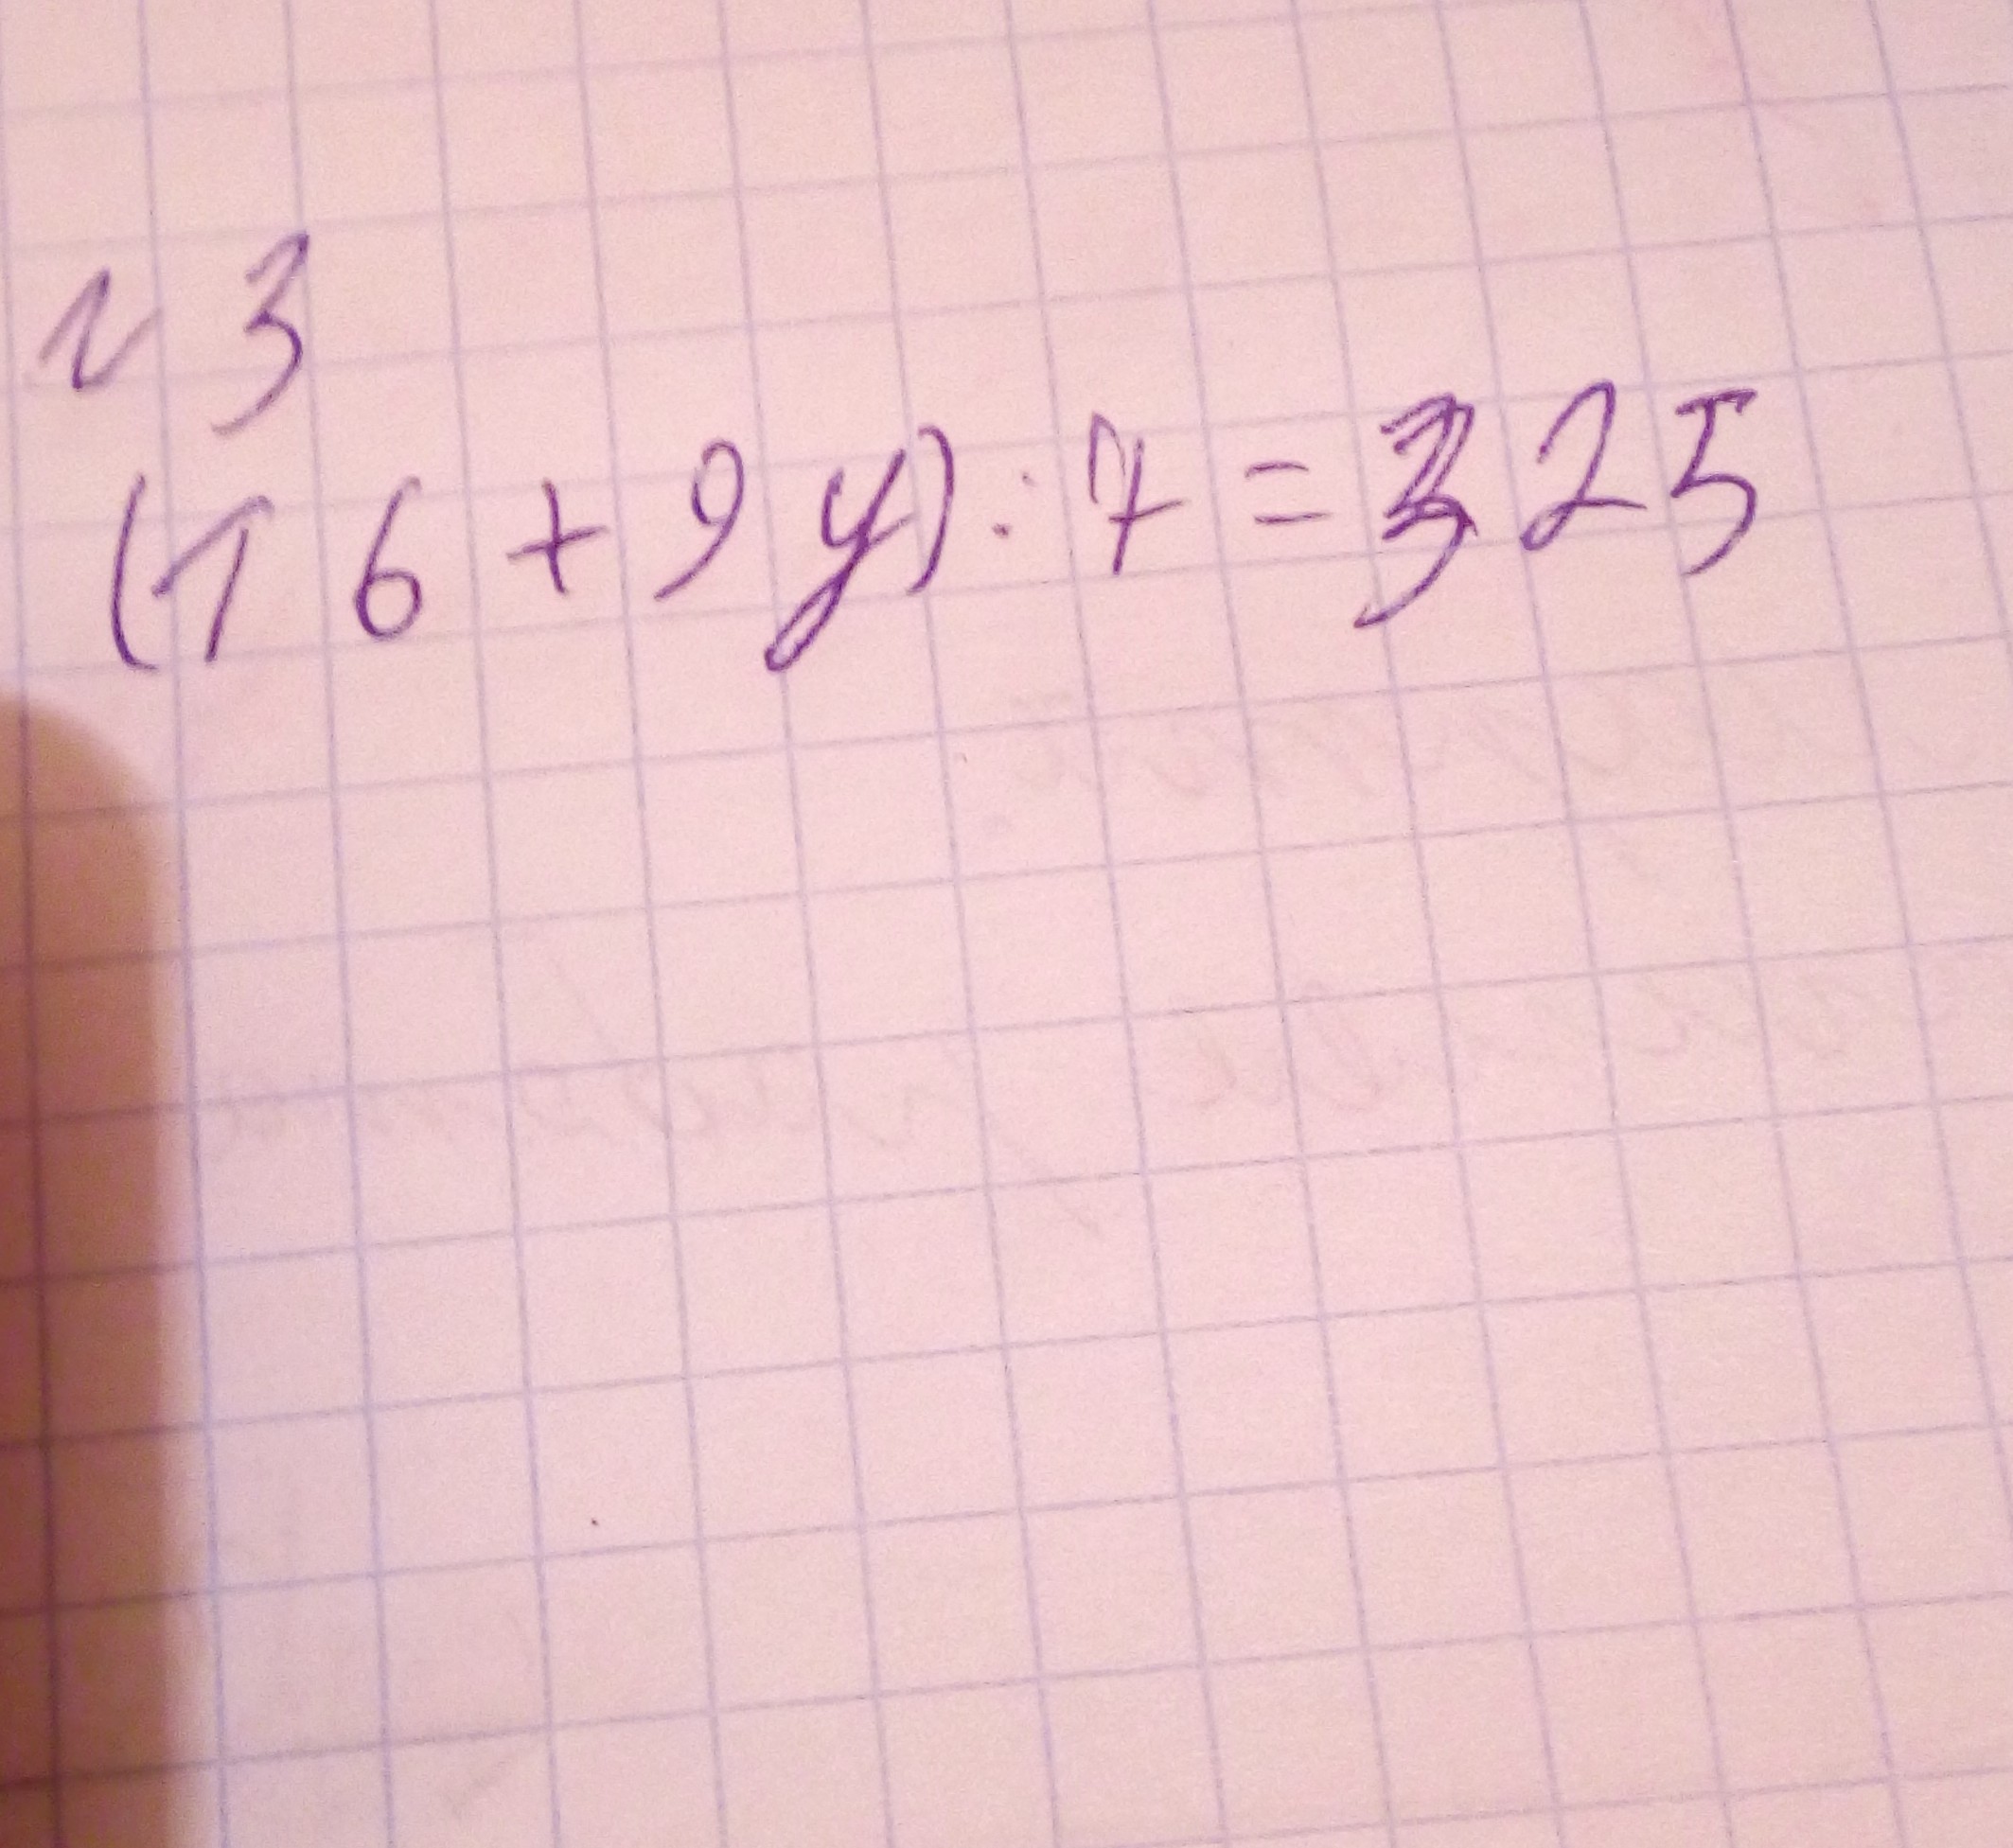 № 3
(16 + 9y) : 7 = 325